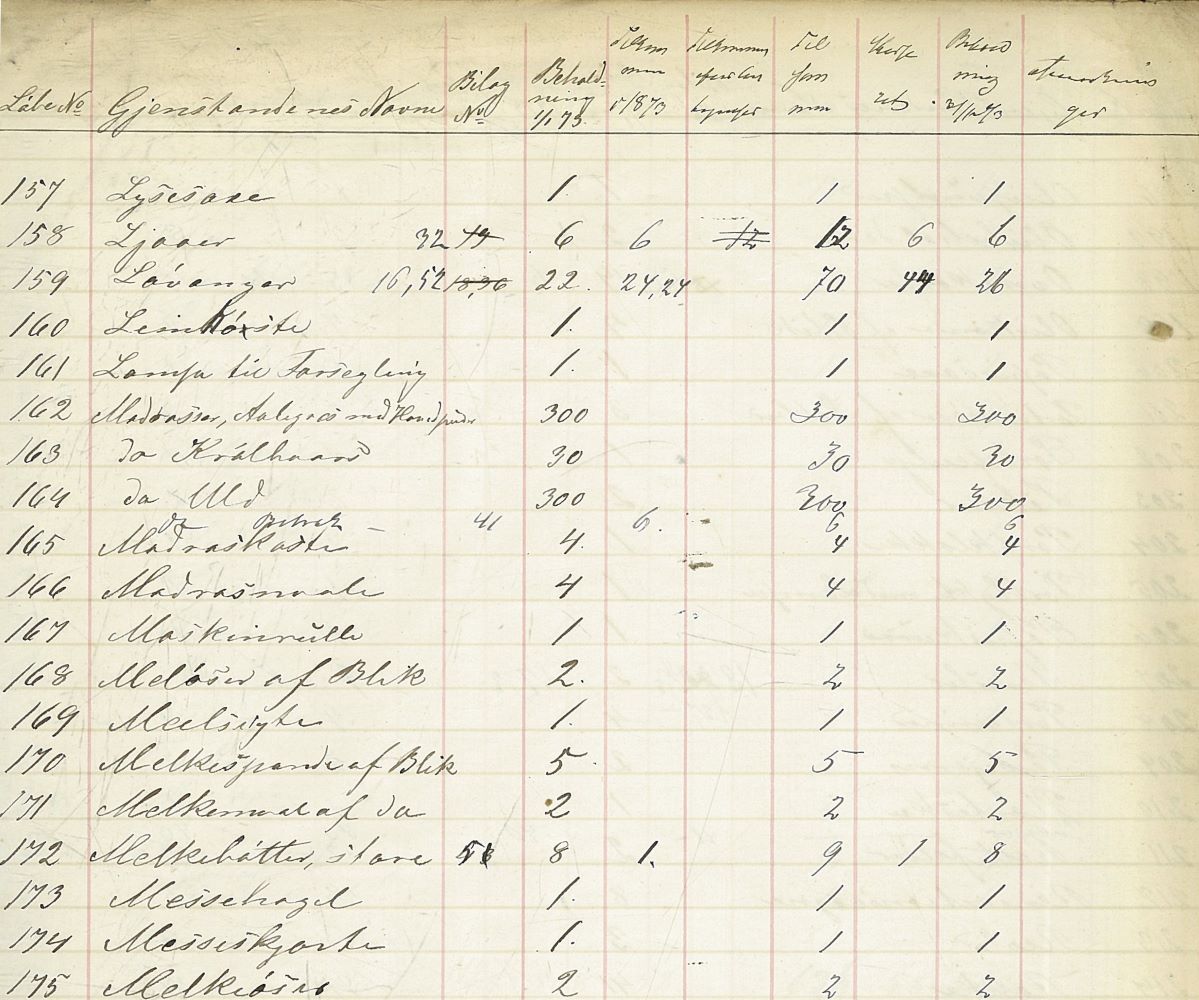 Løbe No Gjenstandenes Navne Bilag No Behold-ning 1/1 73. Tilkommen i 1873 Tilkommen Til sammen Kasseret Beholdning 31/12 73 Anmærkninger
157 Lysesaxe 1. 1 1
158 Ljaaer 32 19 6 6 12 12 6 6
159 Lövanger 16,52 18,36 22. 24,24 70 44 26
160 Leimkörste 1. 1 1
161 Lampe til Forsegling 1. 1 1
162 Madrasser, Aalegræs med Hovedpuder 300 300 300
163 do Krölhaars 30 30 30
164 do Uld 300 300 300
do Betræk 41 6. 6 6
165 Madraskaste 4. 4 4
166 Madrasnaale 4 4 4
167 Maskinrulle 1 1 1
168 Melöser af Blik 2. 2 2
169 Meelsigte 1. 1 1
170 Melkespande af Blik 5 5 5
171 Melkemaal af do 2 2 2
172 Melkebötter, store 8 1. 9 1 8
173 Messehagel 1. 1 1
174 Messeskjorte 1. 1 1
175 Melkeöser 2 2 2